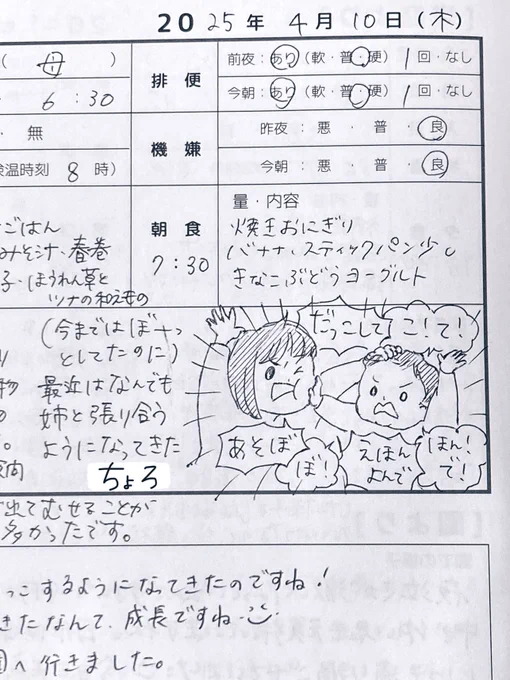 2025年 4月10日(木)
(母)
6:30
排便
前夜:あり(軟・普・硬) 1回・なし
今朝:あり(軟・普・硬) 1回・なし
・無
検温時刻 8時)
機嫌
昨夜:悪・普・良
今朝:悪・普・良
ごはん
みそ汁・春巻
子・ほうれん草と
ツナの和えもの
朝食
7:30
量・内容
焼きおにぎり
バナナ、スティックパン少し
きなこぶどうヨーグルト
(今まではぼーっ
としてたのに)
最近はなんでも
姉と張り合う
ようになってきた
ちょろ
だっこして
こ!て!
あそぼ
ぼ!
えほん
よんで
ほん!
で!
出てむせることが
多かったです。
っこするようになってきたのですね!
きたなんて、成長ですね
へ行きました。